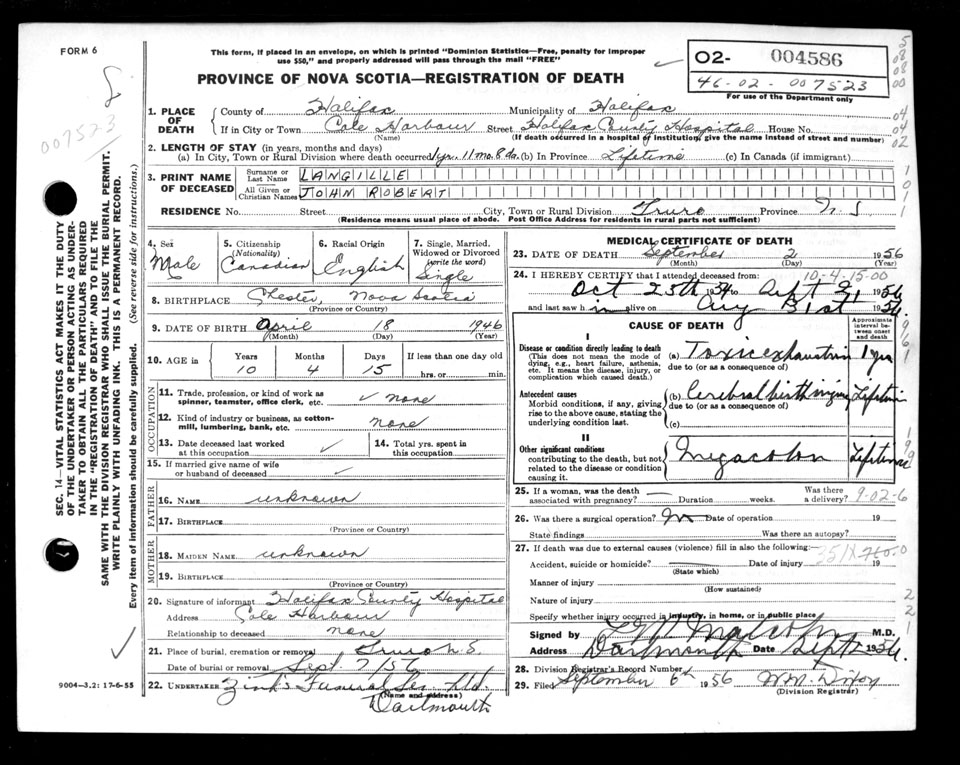 FORM 6
This form, if placed in an envelope, on which is printed "Dominion Statistics—Free, penalty for improper
use $50," and properly addressed will pass through the mail "FREE"
PROVINCE OF NOVA SCOTIA—REGISTRATION OF DEATH
02- 004586
46-02-007523
For use of the Department only
007523
SEC. 14—VITAL STATISTICS ACT MAKES IT THE DUTY
OF THE UNDERTAKER OR PERSON ACTING AS UNDER-
TAKER TO OBTAIN ALL THE PARTICULARS REQUIRED
IN THE "REGISTRATION OF DEATH" AND TO FILE THE
SAME WITH THE DIVISION REGISTRAR WHO SHALL ISSUE THE BURIAL PERMIT.
WRITE PLAINLY WITH UNFADING INK. THIS IS A PERMANENT RECORD.
Every item of information should be carefully supplied. (See reverse side for instructions.)
1. PLACE OF DEATH County of Halifax Municipality of Halifax
If in City or Town Cole Harbour Street Halifax County Hospital House No.
(Name) (If death occurred in a hospital or institution, give the name instead of street and number)
2. LENGTH OF STAY (in years, months and days)
(a) In City, Town or Rural Division where death occurred 1 yr. 11 mo. 8 da. (b) In Province Lifetime (c) In Canada (if immigrant)
3. PRINT NAME OF DECEASED Surname or Last Name LANGILLE
All Given or Christian Names JOHN ROBERT
RESIDENCE No. Street City, Town or Rural Division Truro Province N.S
(Residence means usual place of abode. Post Office Address for residents in rural parts not sufficient)
4. Sex Male
5. Citizenship (Nationality) Canadian
6. Racial Origin English
7. Single, Married, Widowed or Divorced (write the word) Single
8. BIRTHPLACE Chester, Nova Scotia
(Province or Country)
9. DATE OF BIRTH April 18 1946
(Month) (Day) (Year)
10. AGE in Years Months Days If less than one day old
10 4 15 hrs. or min.
OCCUPATION
11. Trade, profession, or kind of work as spinner, teamster, office clerk, etc. ✓ none
12. Kind of industry or business, as cotton-mill, lumbering, bank, etc. none
13. Date deceased last worked at this occupation ✓
14. Total yrs. spent in this occupation
15. If married give name of wife or husband of deceased ✓
FATHER
16. NAME unknown
17. BIRTHPLACE
(Province or Country)
MOTHER
18. MAIDEN NAME unknown
19. BIRTHPLACE
(Province or Country)
20. Signature of informant Halifax County Hospital
Address Cole Harbour
Relationship to deceased none
21. Place of burial, cremation or removal Truro N.S.
Date of burial or removal Sept. 7/56
22. UNDERTAKER Zink's Funeral Ser. Ltd.
(Name and address)
Dartmouth
9004—3.2: 17-6-55
MEDICAL CERTIFICATE OF DEATH
23. DATE OF DEATH September 2 1956
(Month) (Day) (Year)
24. I HEREBY CERTIFY that I attended deceased from: 10-4-15-00
Oct 25th 1954 to Sept 2 1956
and last saw him alive on Aug 31st 1956.
CAUSE OF DEATH
Approximate interval between onset and death
I
Disease or condition directly leading to death
(This does not mean the mode of dying, e.g., heart failure, asthenia, etc. It means the disease, injury, or complication which caused death.)
(a) Toxic exhaustion 1 yr
due to (or as a consequence of)
Antecedent causes
Morbid conditions, if any, giving rise to the above cause, stating the underlying condition last.
(b) Cerebral birth injury Lifetime
due to (or as a consequence of)
(c)
II
Other significant conditions
contributing to the death, but not related to the disease or condition causing it.
Megacolon Lifetime
25. If a woman, was the death associated with pregnancy? Duration weeks. Was there a delivery? 9-02-6
26. Was there a surgical operation? No Date of operation 19
State findings Was there an autopsy?
27. If death was due to external causes (violence) fill in also the following:
Accident, suicide or homicide? Date of injury 19
(State which)
Manner of injury
(How sustained)
Nature of injury
Specify whether injury occurred in industry, in home, or in public place
Signed by Malcolm M.D.
Address Dartmouth Date Sept 2 1956.
28. Division Registrar's Record Number
29. Filed September 6th 1956 W.M. Dixon
(Division Registrar)